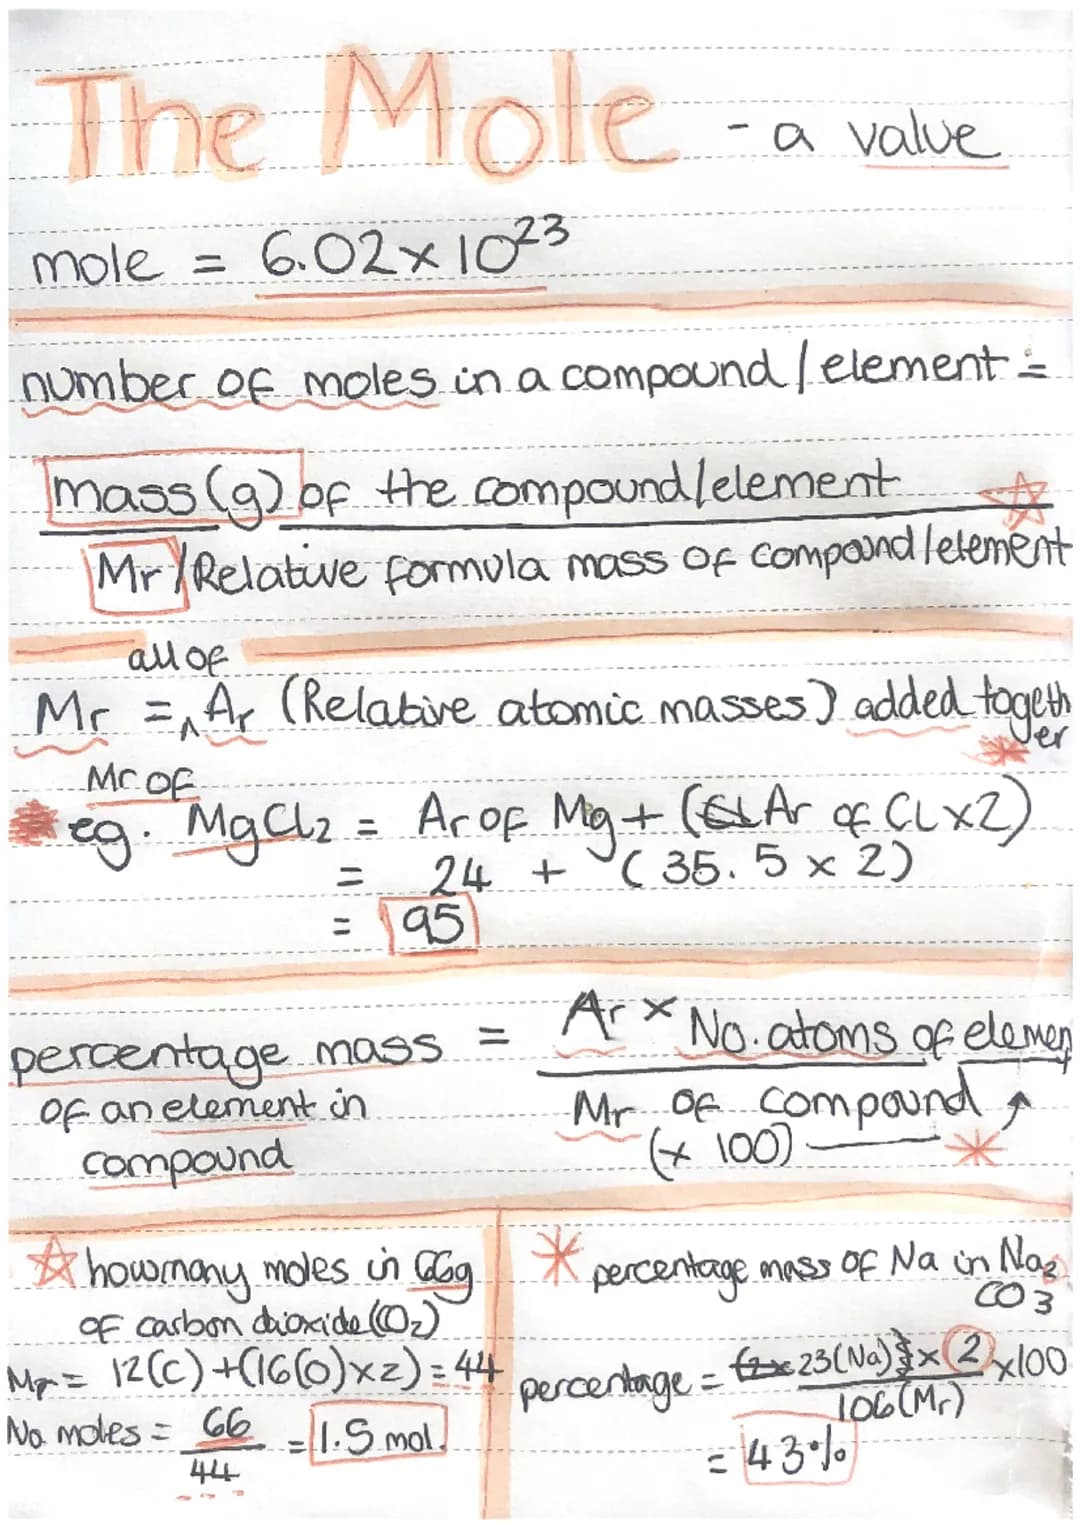 The Mole - a value
mole = 6.02 x 10²³
number of moles in a compound / element =
mass (g) of the compound/element
Mr / Relative formula mass of compound/element
all of
Mr = ^ Ar (Relative atomic masses) added togeth
er
Mr of
eg. MgCl₂ = Ar of Mg + (Ar of CL x 2)
= 24 + (35.5 x 2)
= 95
percentage mass = Ar x No. atoms of elemen
of an element in
compound
Mr of compound
(x 100)
how many moles in 66g
of carbon dioxide (CO₂)
Mr = 12(C) + (16(O) x 2) = 44
No. moles = 66
44
= 1.5 mol.
percentage mass of Na in Na₂
CO3
percentage = 23(Na) x 2 x100
106 (Mr)
= 43%